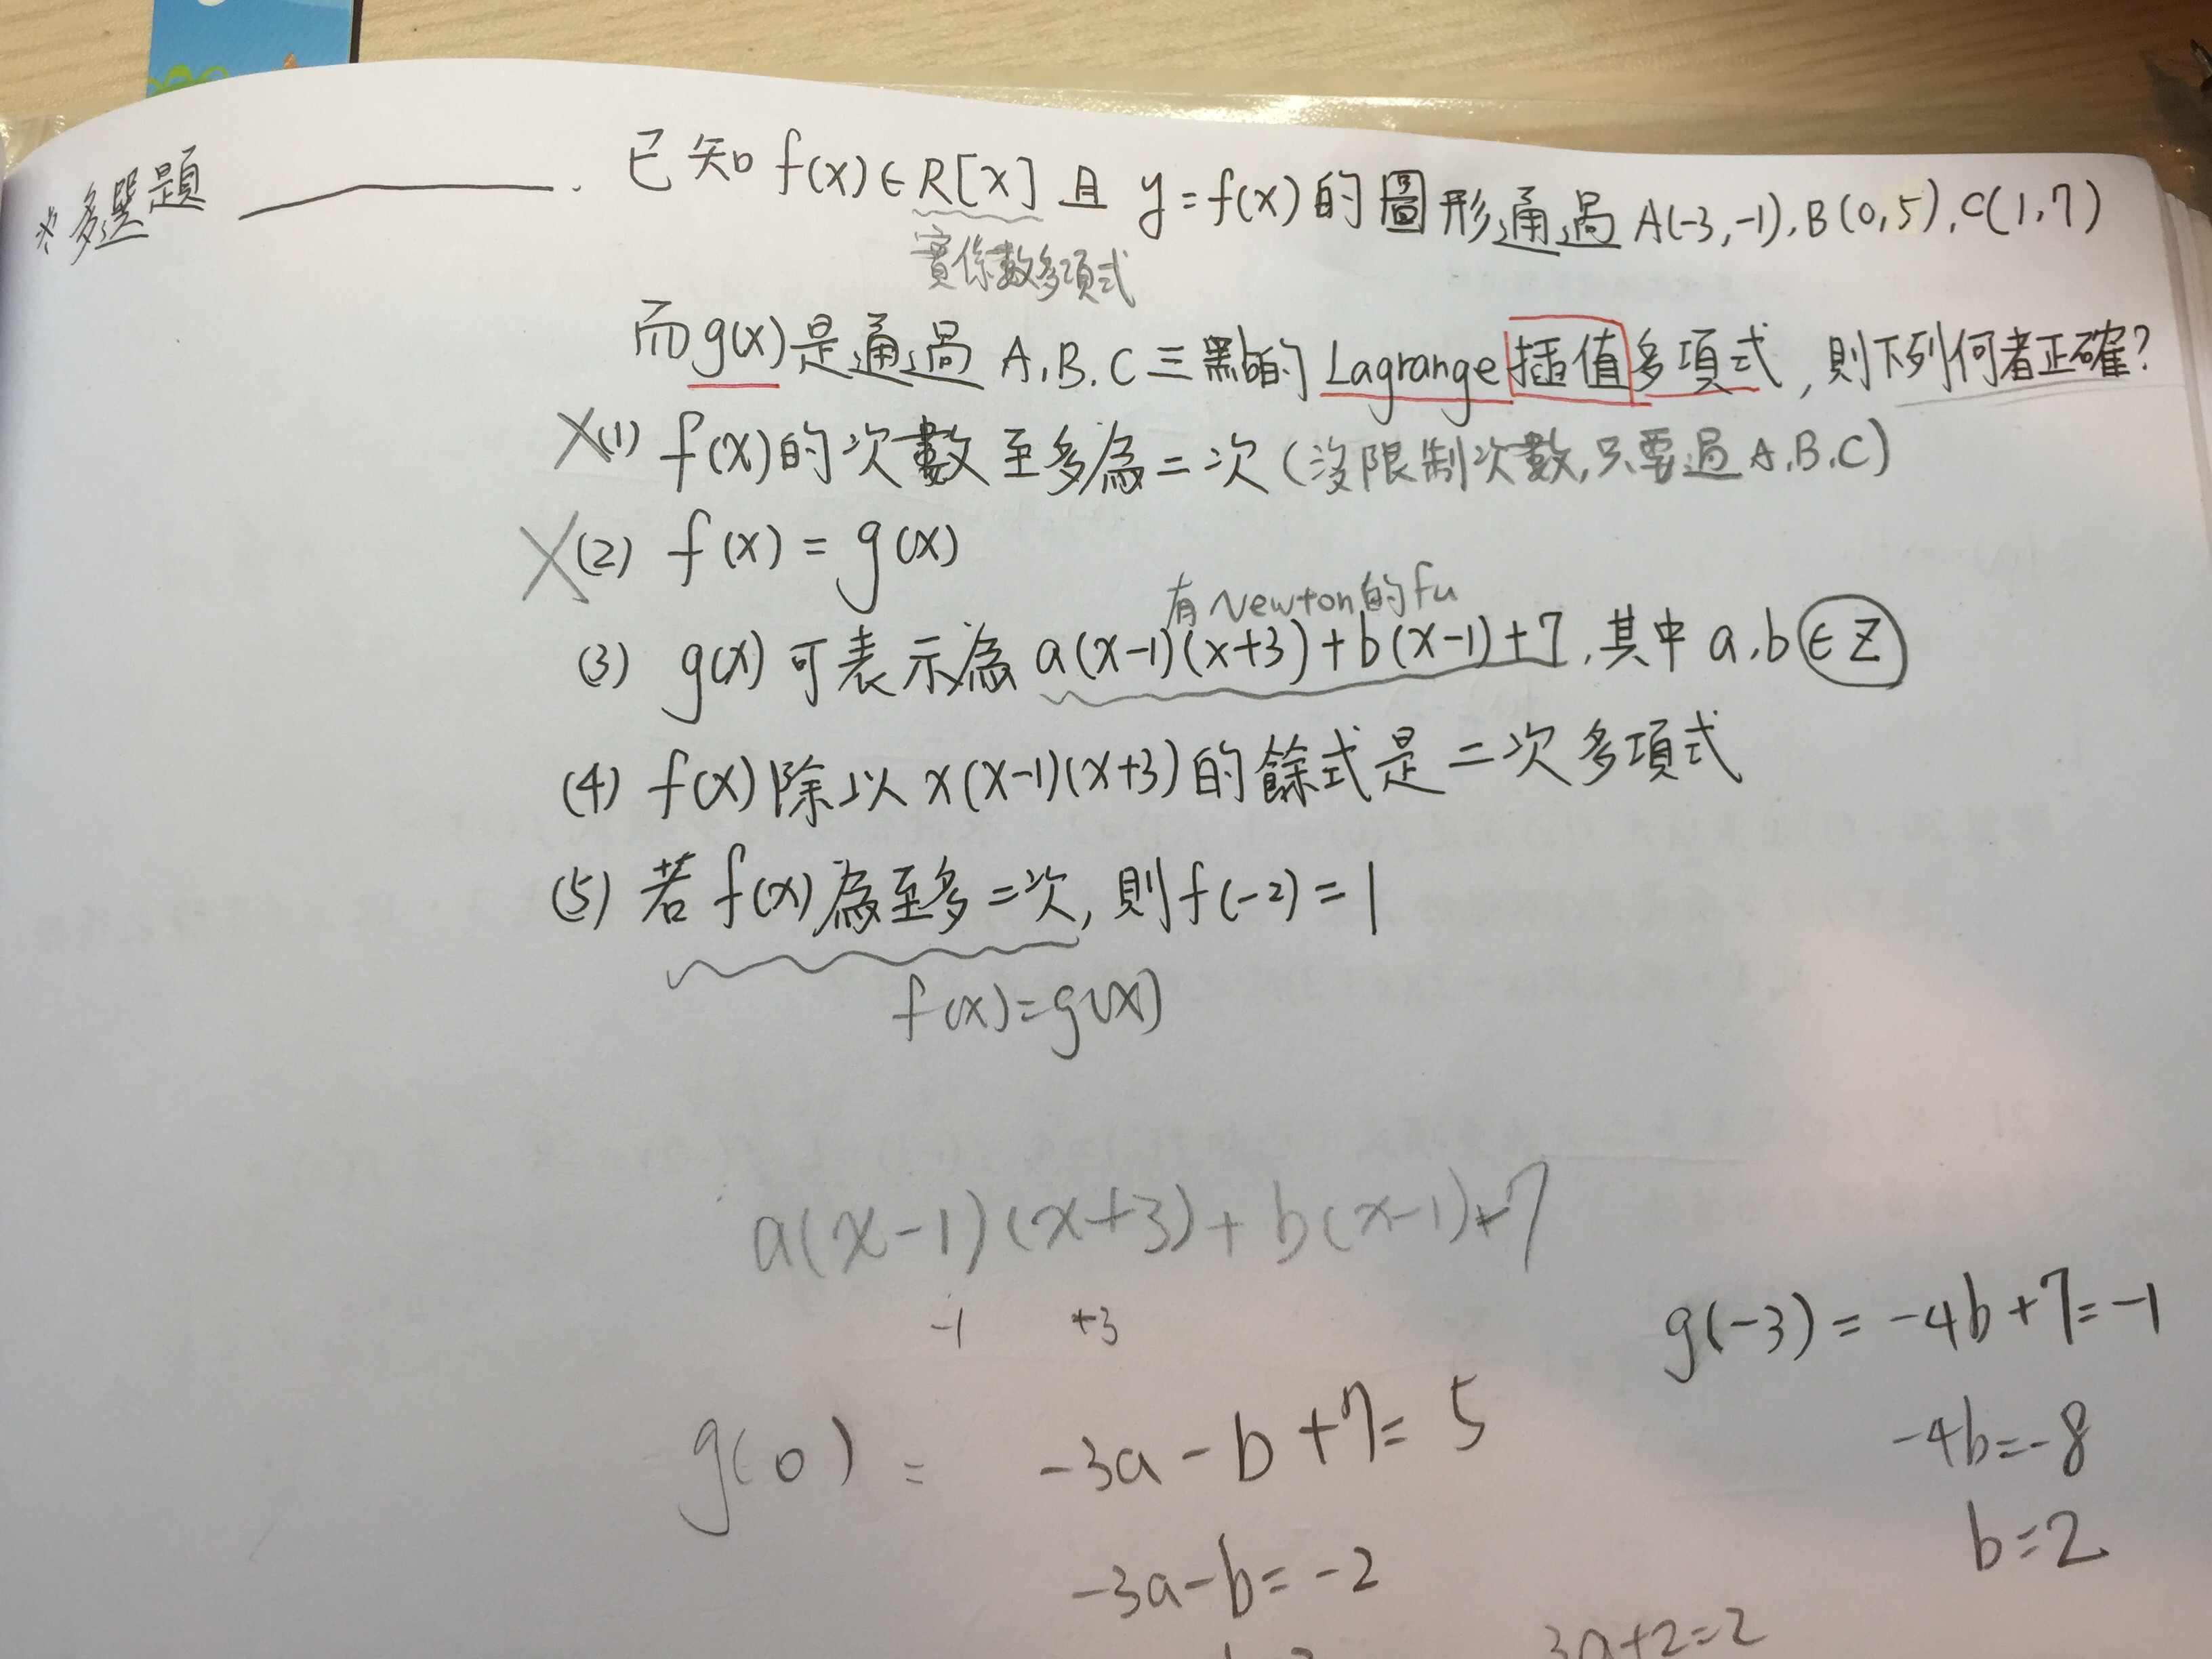 ※多選題 ________. 已知 f(x)∈R[x] 且 y=f(x) 的圖形通過 A(-3,-1), B(0,5), C(1,7)
實係數多項式
而 g(x) 是通過 A.B.C 三點的 Lagrange 插值多項式, 則下列何者正確?
X(1) f(x)的次數至多為二次 (沒限制次數,只要過A.B.C)
X(2) f(x) = g(x)
有Newton的fu
(3) g(x) 可表示為 a(x-1)(x+3)+b(x-1)+7, 其中 a,b∈Z
(4) f(x)除以 x(x-1)(x+3)的餘式是二次多項式
(5) 若 f(x)為至多二次, 則 f(-2) = 1
f(x)=g(x)
a(x-1)(x+3)+b(x-1)+7
-1 +3
g(-3) = -4b+7=-1
g(0) = -3a-b+7=5
-4b=-8
-3a-b=-2
b=2
3a+2=2